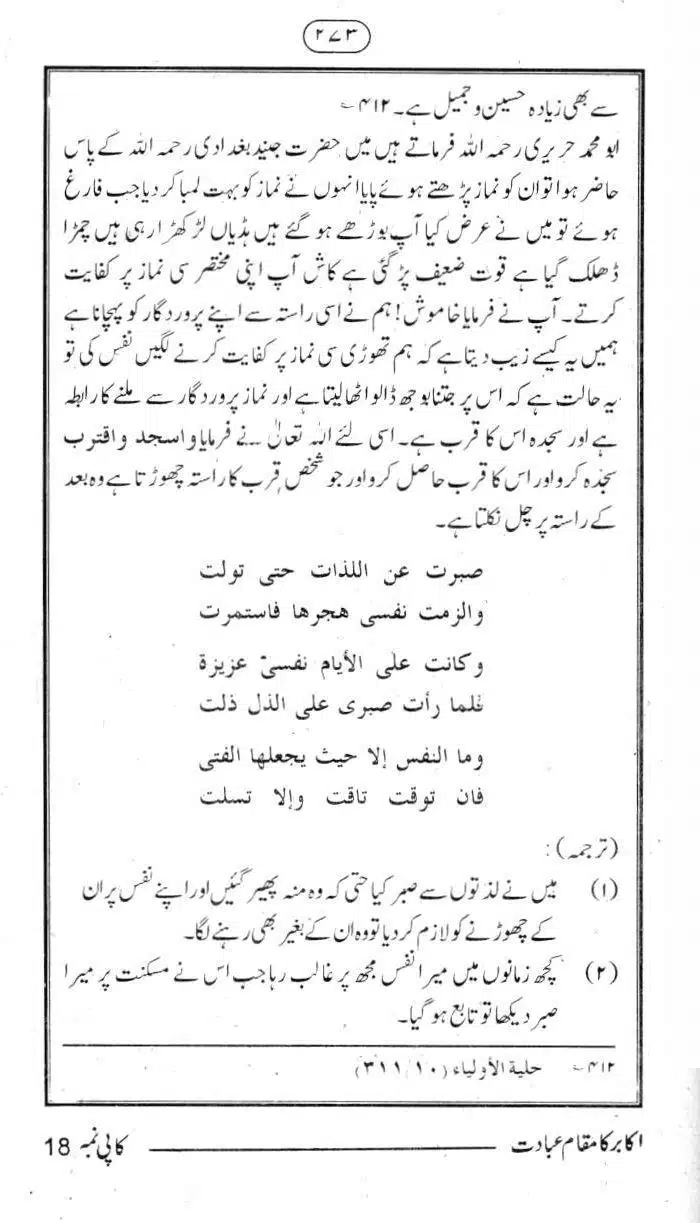 ۲۷۳
سے بھی زیادہ حسین و جمیل ہے۔ ۴۱۲؎
ابو محمد حریری رحمہ اللہ فرماتے ہیں میں حضرت جنید بغدادی رحمہ اللہ کے پاس
حاضر ہوا تو ان کو نماز پڑھتے ہوئے پایا انہوں نے نماز کو بہت لمبا کر دیا جب فارغ
ہوئے تو میں نے عرض کیا آپ بوڑھے ہو گئے ہیں ہڈیاں لڑکھڑا رہی ہیں چمڑا
ڈھلک گیا ہے قوت ضعیف پڑ گئی ہے کاش آپ اپنی مختصر سی نماز پر کفایت
کرتے۔ آپ نے فرمایا خاموش! ہم نے اسی راستہ سے اپنے پروردگار کو پہچانا ہے
ہمیں یہ کیسے زیب دیتا ہے کہ ہم تھوڑی سی نماز پر کفایت کرنے لگیں نفس کی تو
یہ حالت ہے کہ اس پر جتنا بوجھ ڈالو اٹھا لیتا ہے اور نماز پروردگار سے ملنے کا رابطہ
ہے اور سجدہ اس کا قرب ہے۔ اسی لئے اللہ تعالیٰ نے فرمایا و اسجد و اقترب
سجدہ کرو اور اس کا قرب حاصل کرو اور جو شخص قرب کا راستہ چھوڑتا ہے وہ بعد
کے راستہ پر چل نکلتا ہے۔
صبرت عن اللذات حتى تولت
والزمت نفسى هجرها فاستمرت
وكانت على الأيام نفسىٓ عزيزة
فلما رأت صبرى على الذل ذلت
وما النفس إلا حيث يجعلها الفتى
فان توقت تاقت وإلا تسلت
(ترجمہ):
(۱) میں نے لذتوں سے صبر کیا حتی کہ وہ منہ پھیر گئیں اور اپنے نفس پر ان
کے چھوڑنے کو لازم کر دیا تو وہ ان کے بغیر بھی رہنے لگا۔
(۲) کچھ زمانوں میں میرا نفس مجھ پر غالب رہا جب اس نے مسکنت پر میرا
صبر دیکھا تو تابع ہو گیا۔
۴۱۲؎ حلیة الأولیاء (۱۰/۳۱۱)
اکابر کا مقام عبادت کاپی نمبر 18